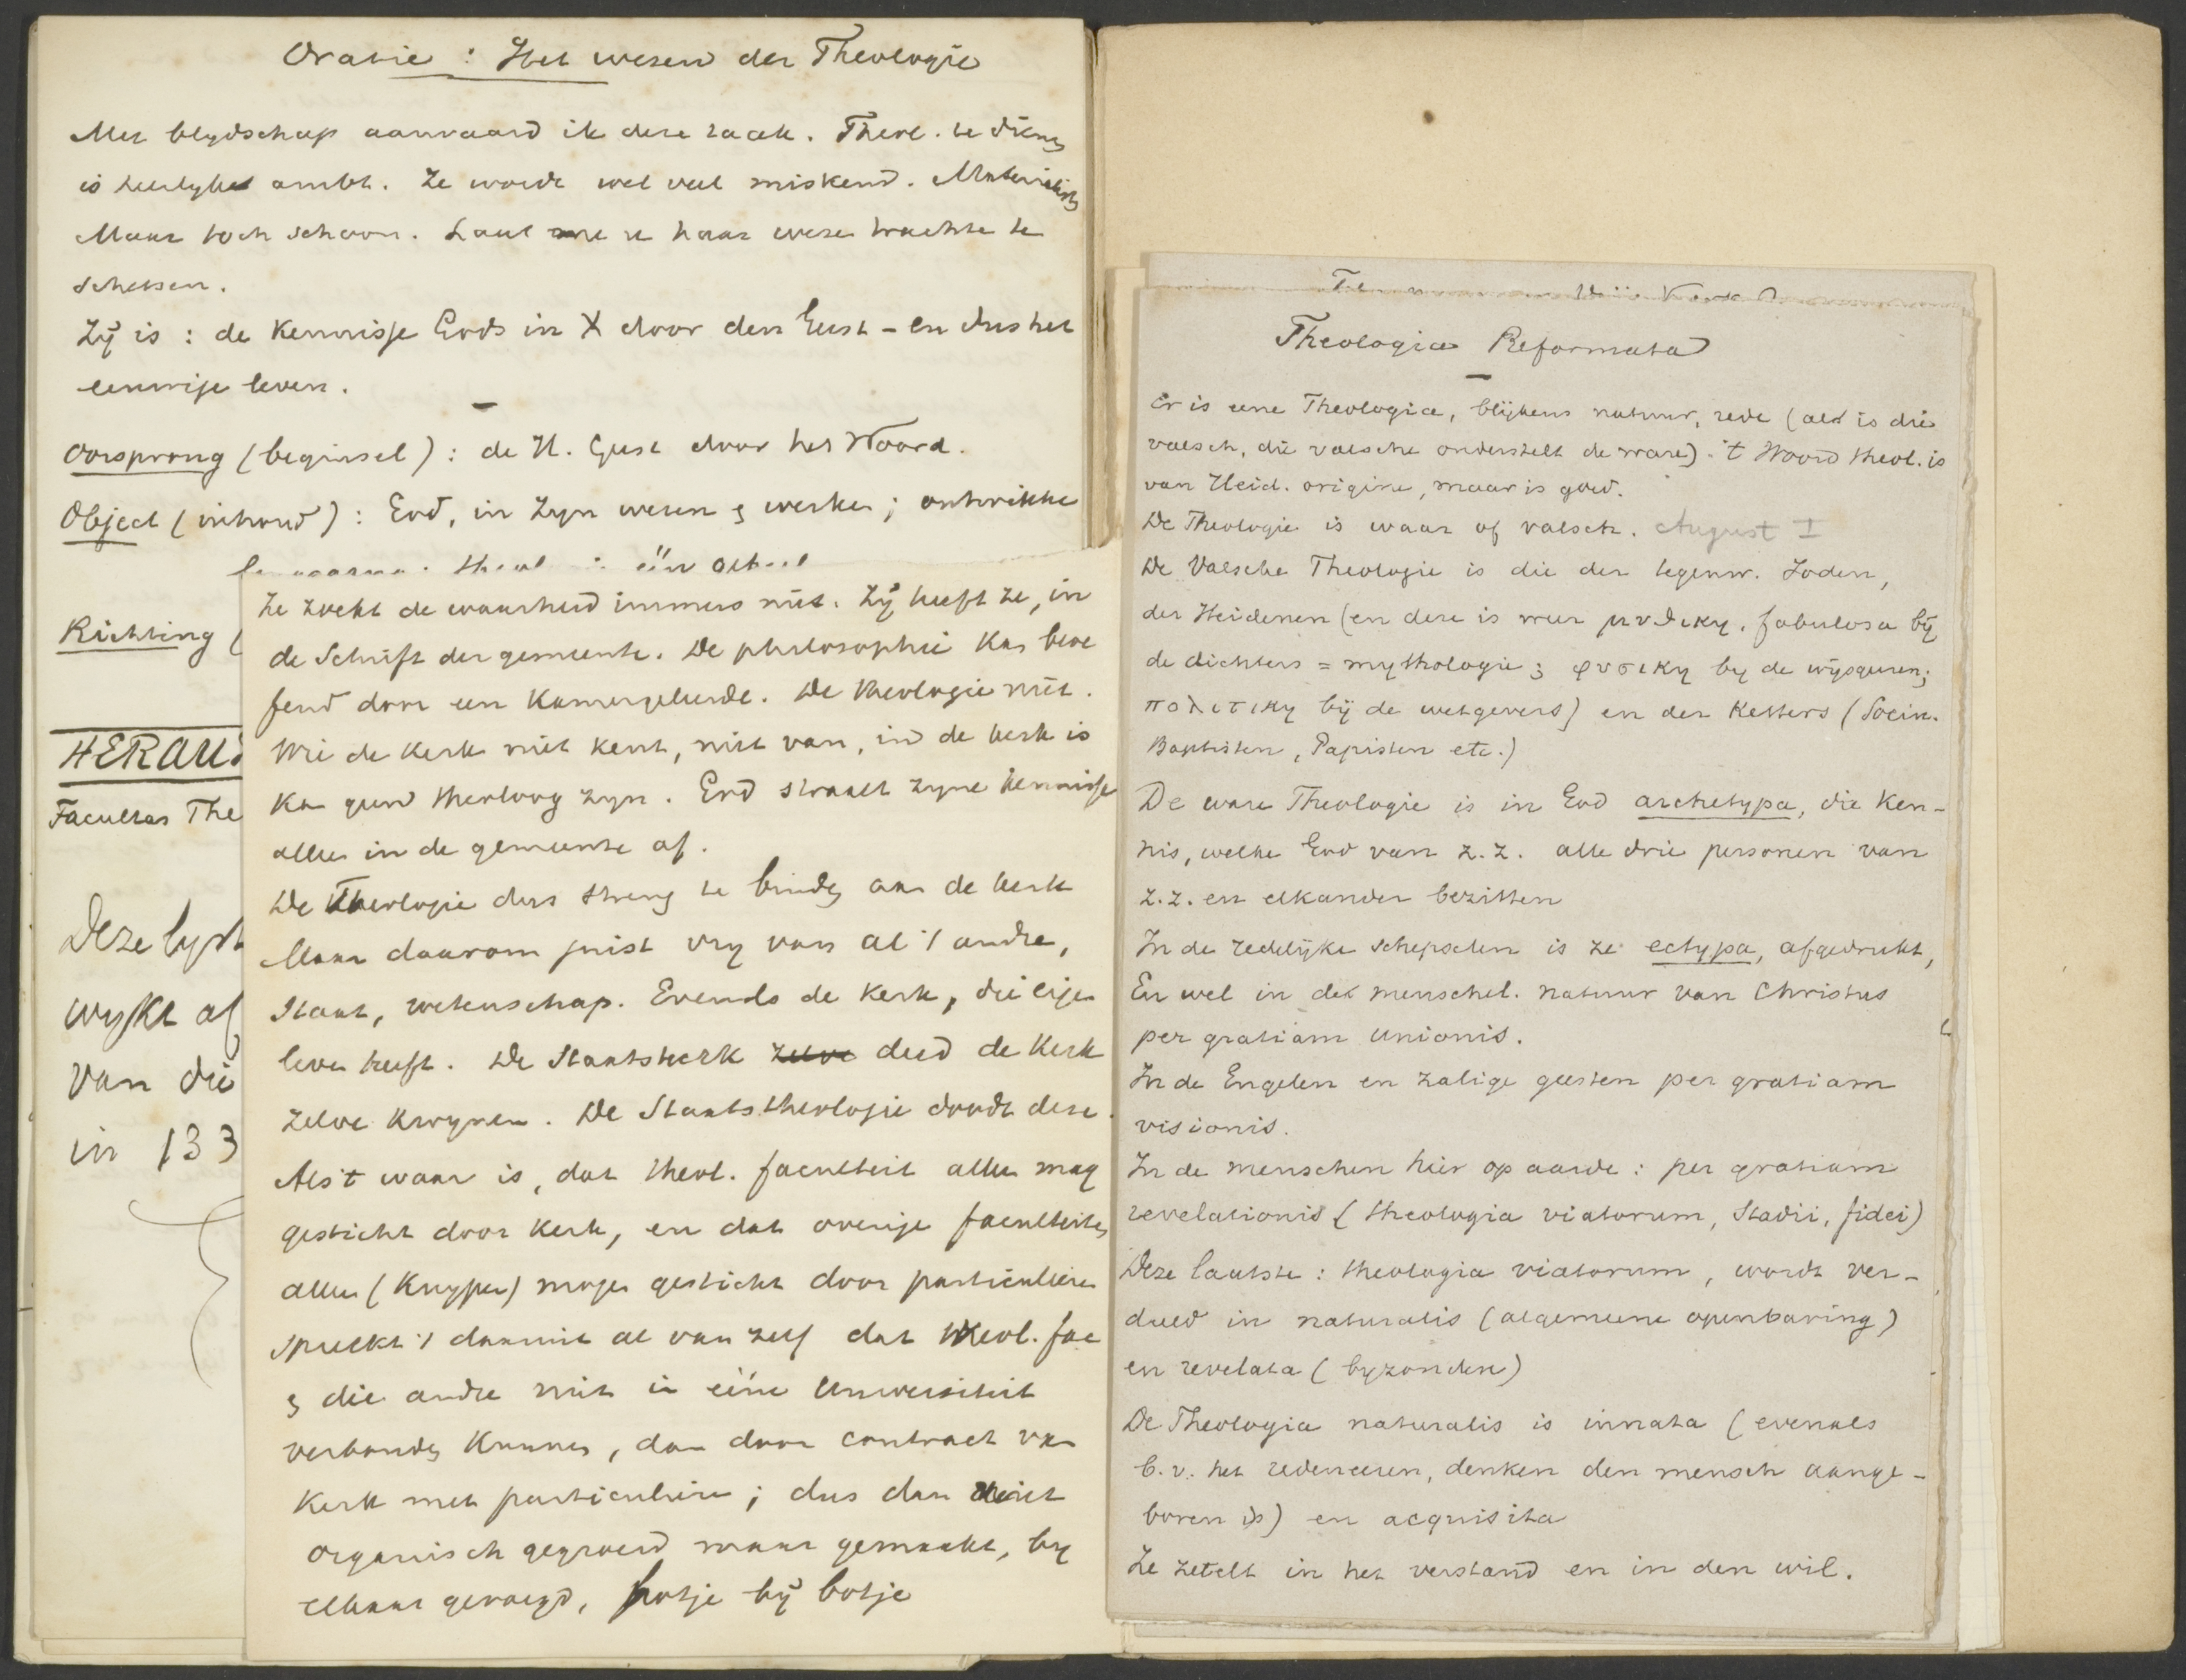 Oratie : Het wesen der Theologie
Met blydschap aanvaard ik deze taak. Theol. te dienen
is heerlyk ambt. Ze wordt wel veel miskend. Materialisten
Maar toch schoon. Laat me u haar wezen trachten te
schetsen.
Zij is : de Kennisse Gods in X door den Geest - en dus het
eeuwige leven.
Oorsprong (beginsel) : de H. Geest door het Woord.
Object (inhoud) : God, in zyn wesen & werken ; ontwikke
theol één
Richting (
HERAU
Facultas The
Deze lyst
wykt af
van die
in 133
Ze zoekt de waarheid immers niet. Zij heeft ze, in
de Schrift der gemeente. De philosophie kan beoe
fend door een Kamergeleerde. De theologie niet.
Wie de Kerk niet kent, niet van, in de kerk is
kan geen theoloog zyn. God straalt zyne kennisse
alleen in de gemeente af.
De Theologie dus streng te binden aan de kerk
Maar daarom juist vry van al 't andre,
Staat, wetenschap. Evenals de Kerk, die eigen
leven heeft. De Staatskerk zelve deed de Kerk
zelve kwynen. De Staatstheologie doodt deze.
Als 't waar is, dat theol. faculteit alleen mag
gesticht door Kerk, en dat overige faculteiten
alleen (Kuyper) mogen gesticht door particulieren
spreekt 't daarmit al van zelf dat theol. fac
& die andre niet in ééne Universiteit
verbonden kunnen, dan door contract van
Kerk met particulieren ; dus dan niet
organisch gegroeid maar gemaakt, by
elkaar gevoegd, botje bij botje
Theologia Reformata
Er is eene Theologia, blijkens natuur, rede (al is die
valsch, die valsche onderstelt de ware). 't Woord theol. is
van Heid. origine, maar is goed.
De Theologie is waar of valsch. August I
De Valsche Theologie is die der tegenw. Joden,
der Heidenen (en deze is weer μυθικη, fabulosa bij
de dichters = mythologie ; φυσικη by de wijsgeeren;
πολιτικη bij de wetgevers) en der Ketters (Socin.
Baptisten, Papisten etc.)
De ware Theologie is in God archetypa, die Ken-
nis, welke God van Z.Z. alle drie personen van
Z.Z. en elkander bezitten
In de redelijke schepselen is ze ectypa, afgedrukt,
En wel in de menschel. natuur van Christus
per gratiam unionis.
In de Engelen en zalige geesten per gratiam
visionis.
In de menschen hier op aarde : per gratiam
revelationis (theologia viatorum, stadii, fidei)
Deze laatste : theologia viatorum, wordt ver-
deeld in naturalis (algemeene openbaring)
en revelata (byzondere)
De Theologia naturalis is innata (evenals
b.v. het redeneeren, denken den mensch aange-
boren is) en acquisita
Ze zetelt in het verstand en in den wil.